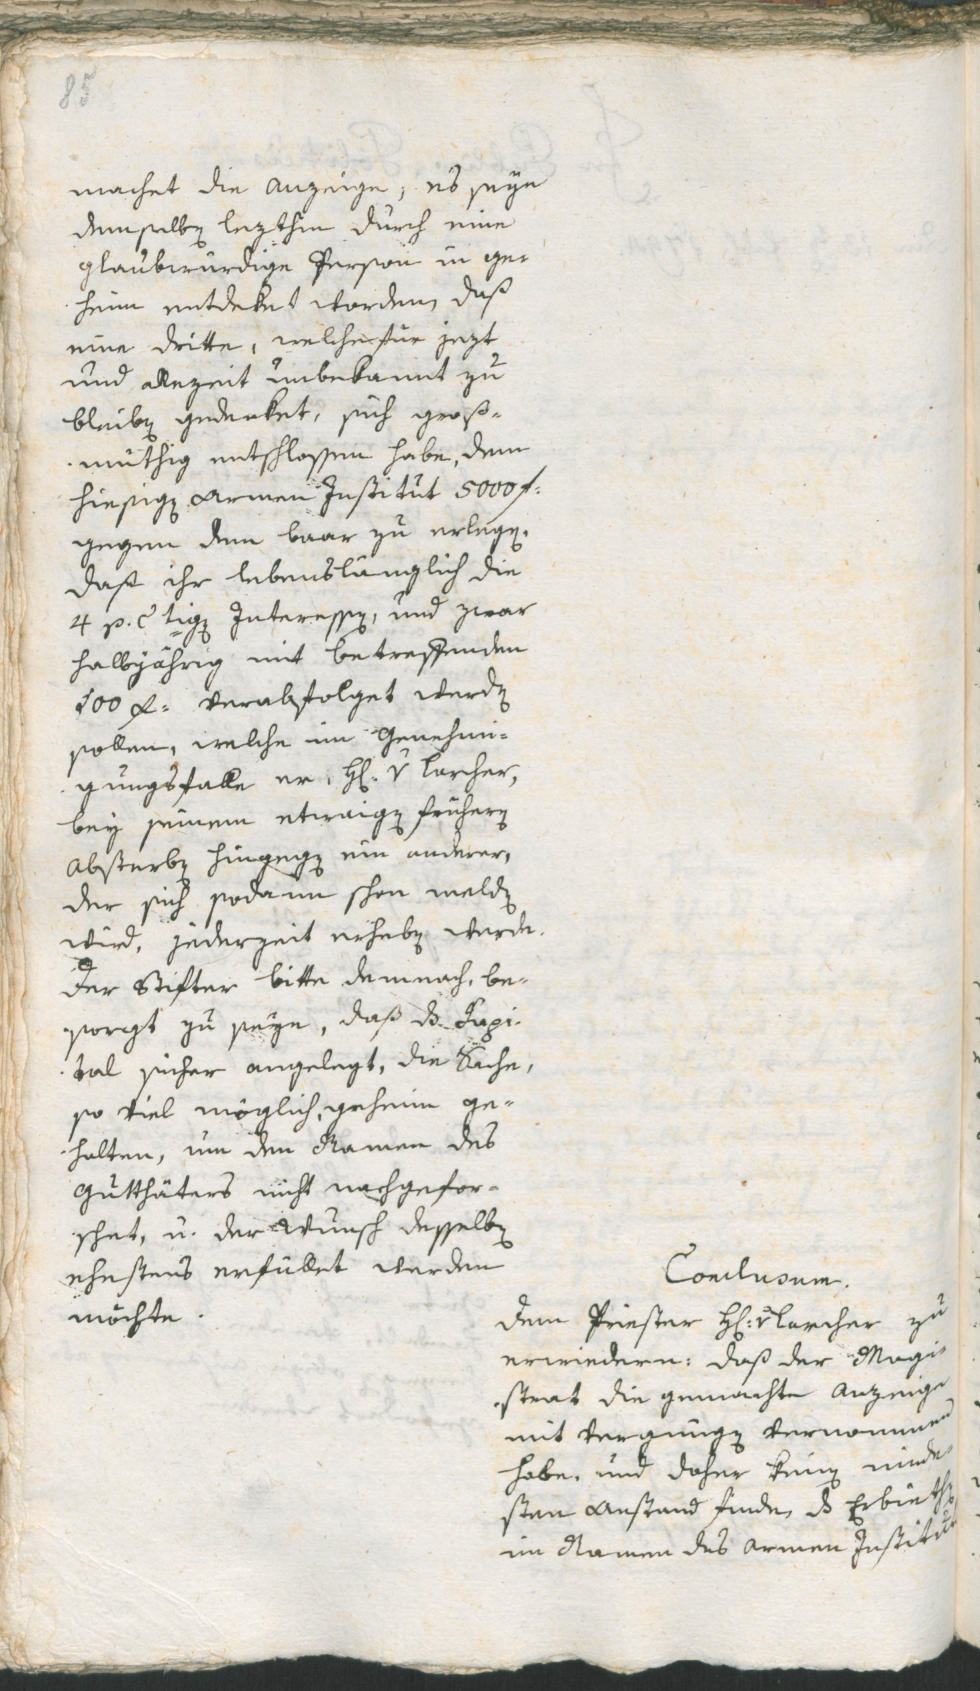 85
machet die Anzeige, es seye
demselben lezthin durch eine
glaubwürdige Person in ge-
heim entdeket worden, daß
eine dritte, welche für jezt
und allezeit unbekannt zu
bleiben gedenket, sich groß-
müthig entschlossen habe, dem
hiesigen Armen Institut 5000 f:
gegen dem baar zu erlegen,
daß ihr lebenslänglich die
4 p. Ctigen Interessen, und zwar
halbjährig mit betreffenden
100 f: verabfolget werden
sollen, welche im Genehmi-
gungsfalle er, H: v Larcher,
bey seinem etwaigen frühern
Absterben hingegen ein anderer,
der sich sodann schon melden
wird, jederzeit erheben werde.
Der Stifter bitte demnach, be-
sorgt zu seyn, daß ds Kapi-
tal sicher angelegt, die Sache,
so viel möglich, geheim ge-
halten, um den Namen des
Gutthäters nicht nachgefor-
schet, u. der Wunsch desselben
ehestens erfüllet werden
möchte.
Conclusum.
Dem Priester H: v Larcher zu
erwiedern: daß der Magi-
strat die gemachte Anzeige
mit Vergnügen vernommen
habe, und daher keinen minde-
sten Anstand finde, ds Erbiethen
im Namen des Armen Instituts